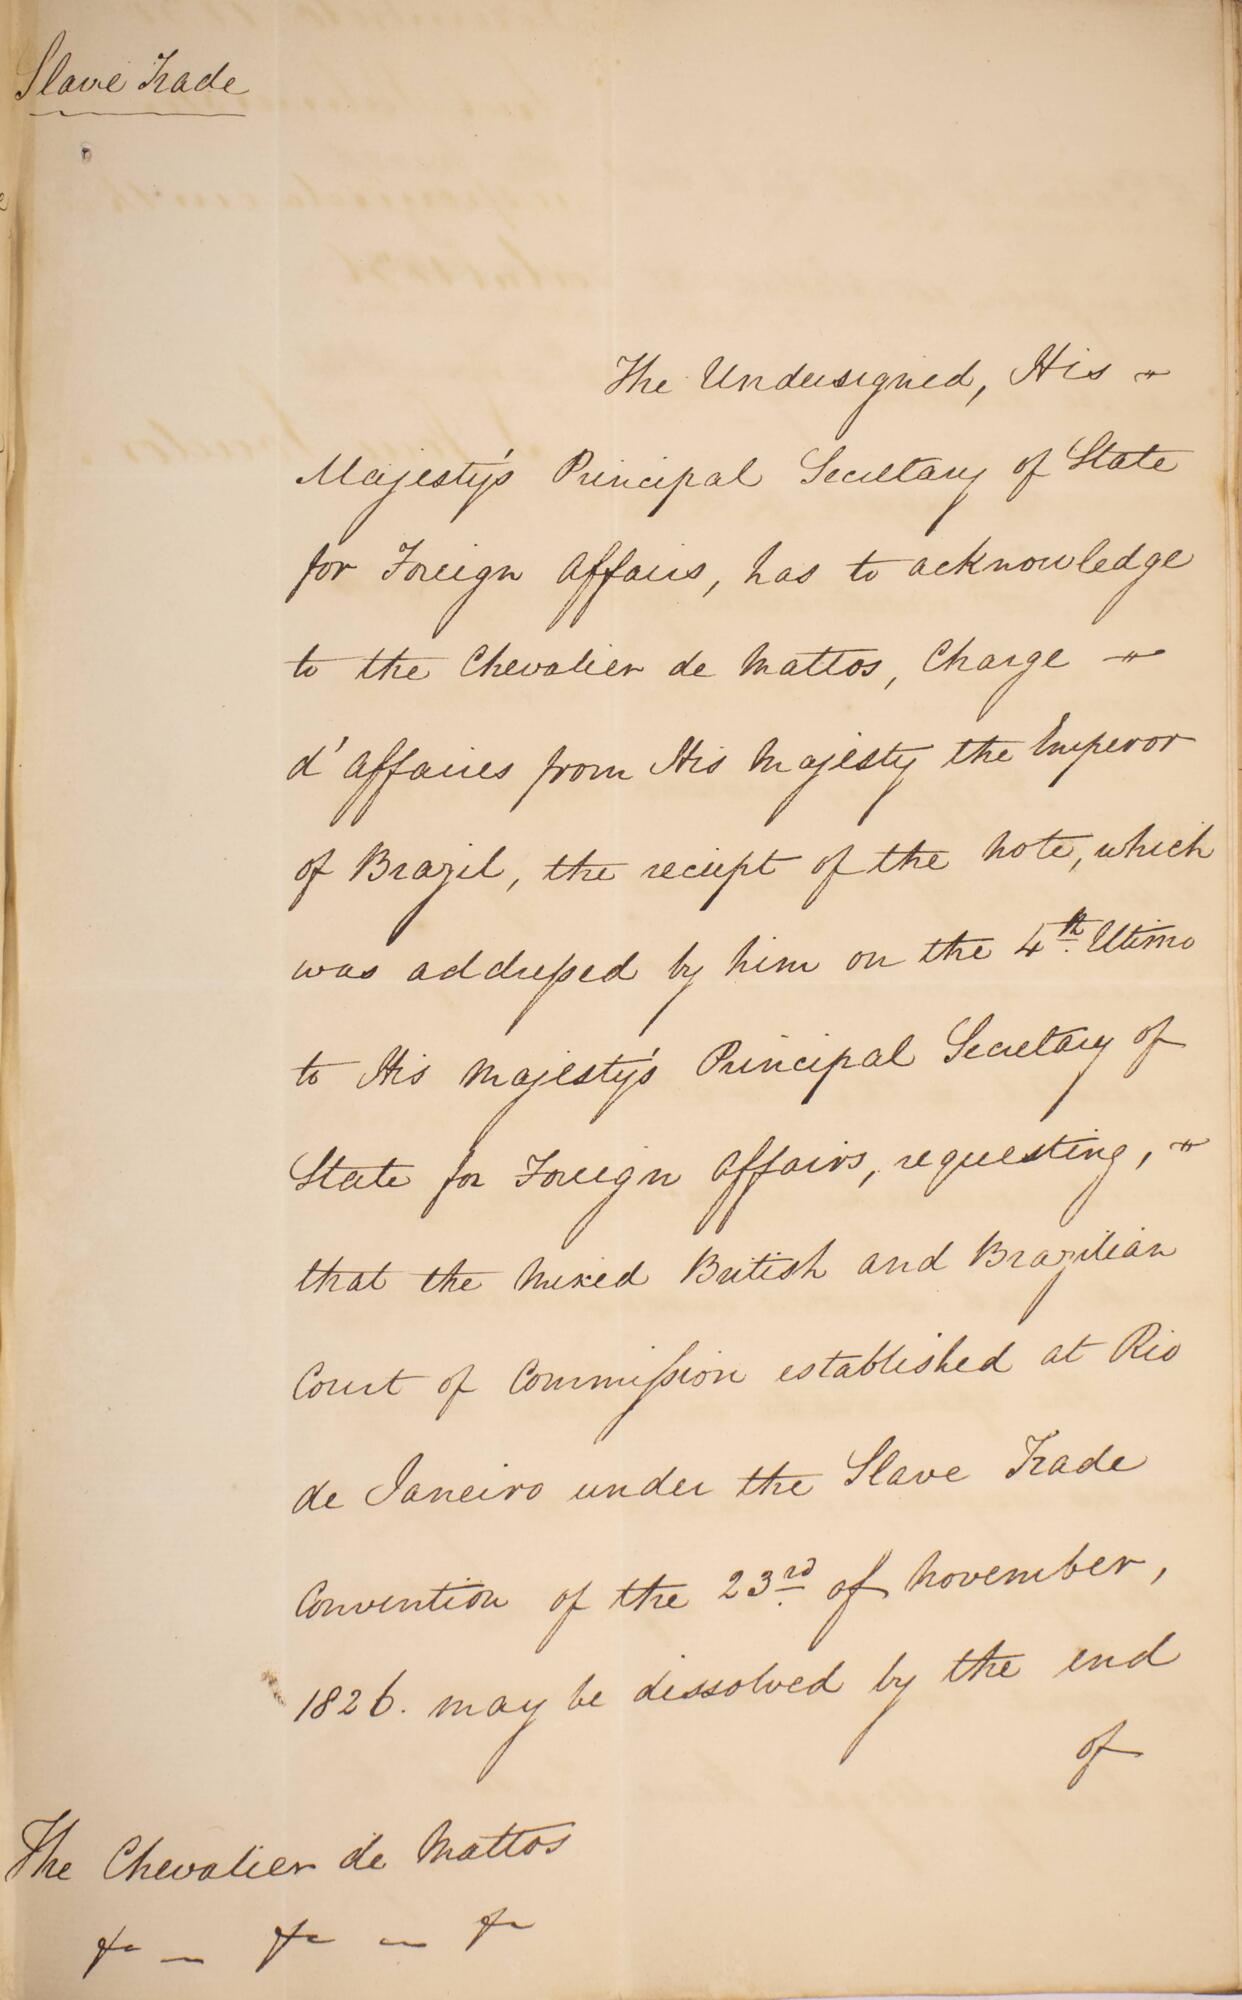 Slave Trade
The Undersigned, His
Majesty's Principal Secretary of State
for Foreign Affairs, has to acknowledge
to the Chevalier de Mattos, Charge
d'Affaires from His Majesty the Emperor
of Brazil, the receipt of the Note, which
was addressed by him on the 4th Ultimo
to His Majesty's Principal Secretary of
State for Foreign Affairs, requesting,
that the Mixed British and Brazilian
Court of Commission established at Rio
de Janeiro under the Slave Trade
Convention of the 23rd of November,
1826. may be dissolved by the end
of
The Chevalier de Mattos
&c — &c — &c